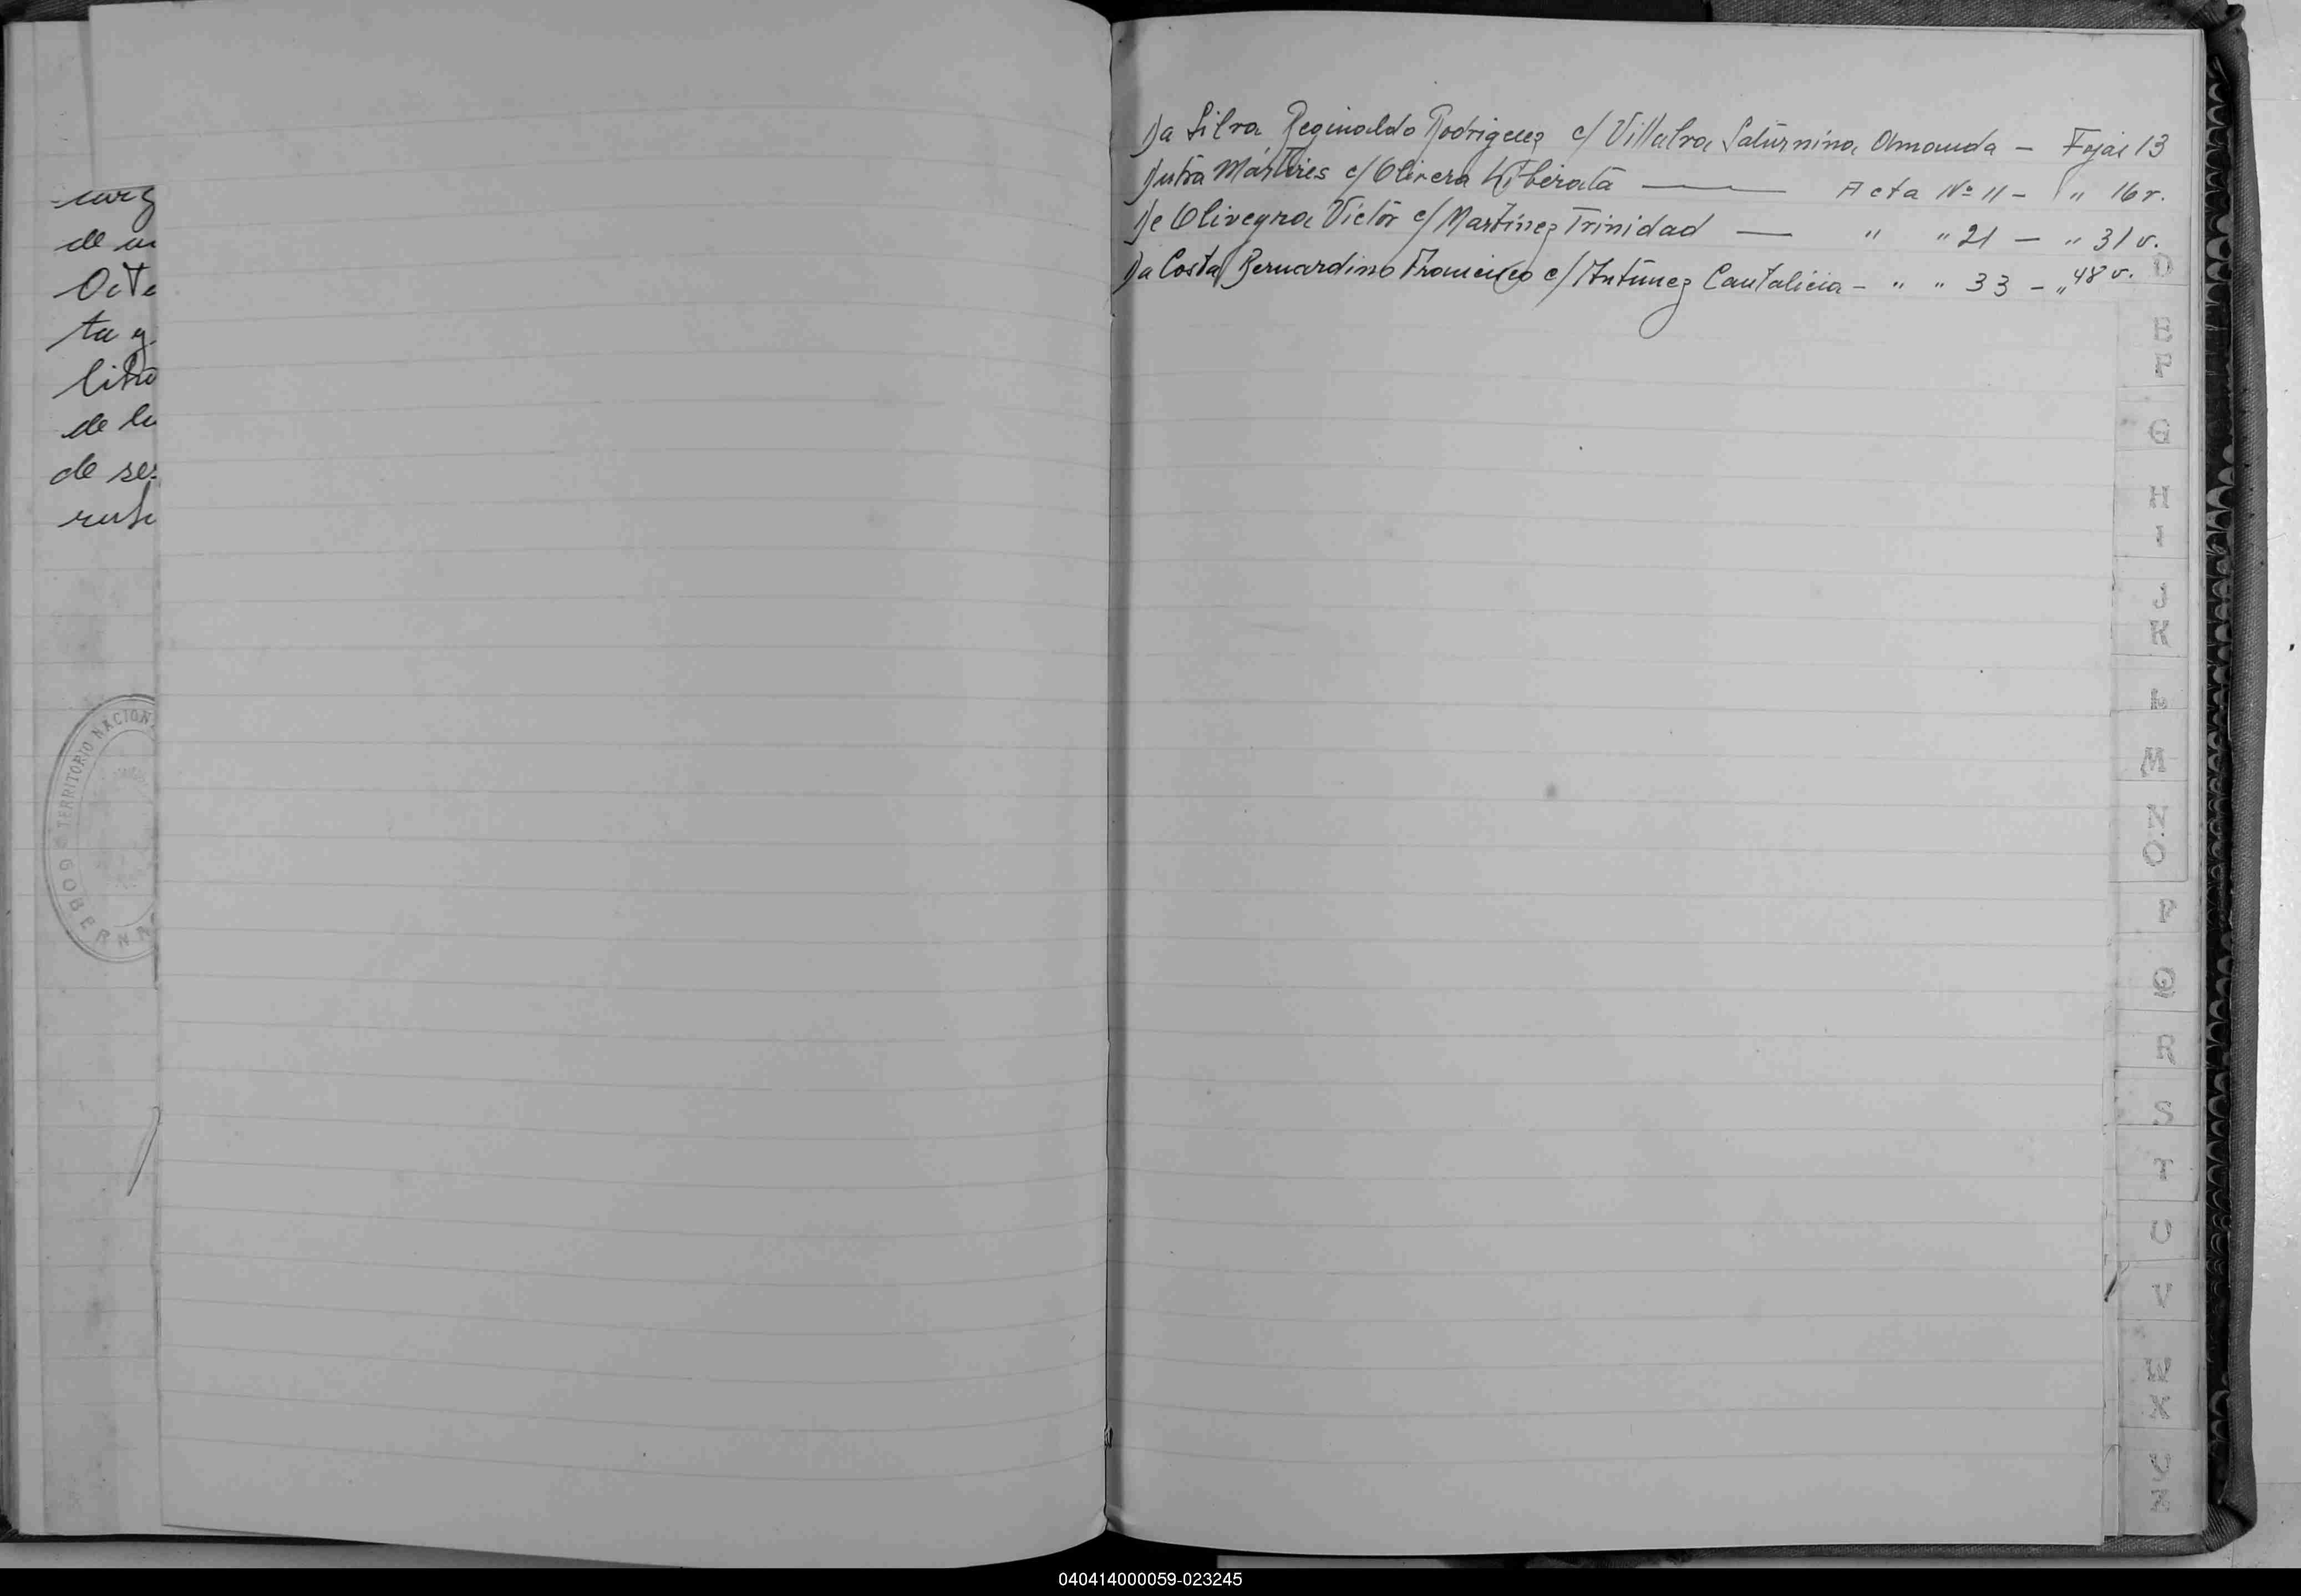 curz
de
Octe
ta y
libro
de la
de se
rub
TERRITORIO NACION
GOBERNA
Da Silva Reginaldo Rodriguez c/ Villalva Saturnina Amanda — Fojas 13
Dutra Mártires c/ Olivera Liberata — Acta Nº 11 — " 16 v.
De Oliveyra Victor c/ Martínez Trinidad — " " 21 — " 31 v.
Da Costa Bernardino Francisco c/ Antúnez Cantalicia — " " 33 — " 48 v.
D
E
F
G
H
I
J
K
L
M
N.
O
P
Q
R
S
T
U
V
W
X
Y
Z
040414000059-023245